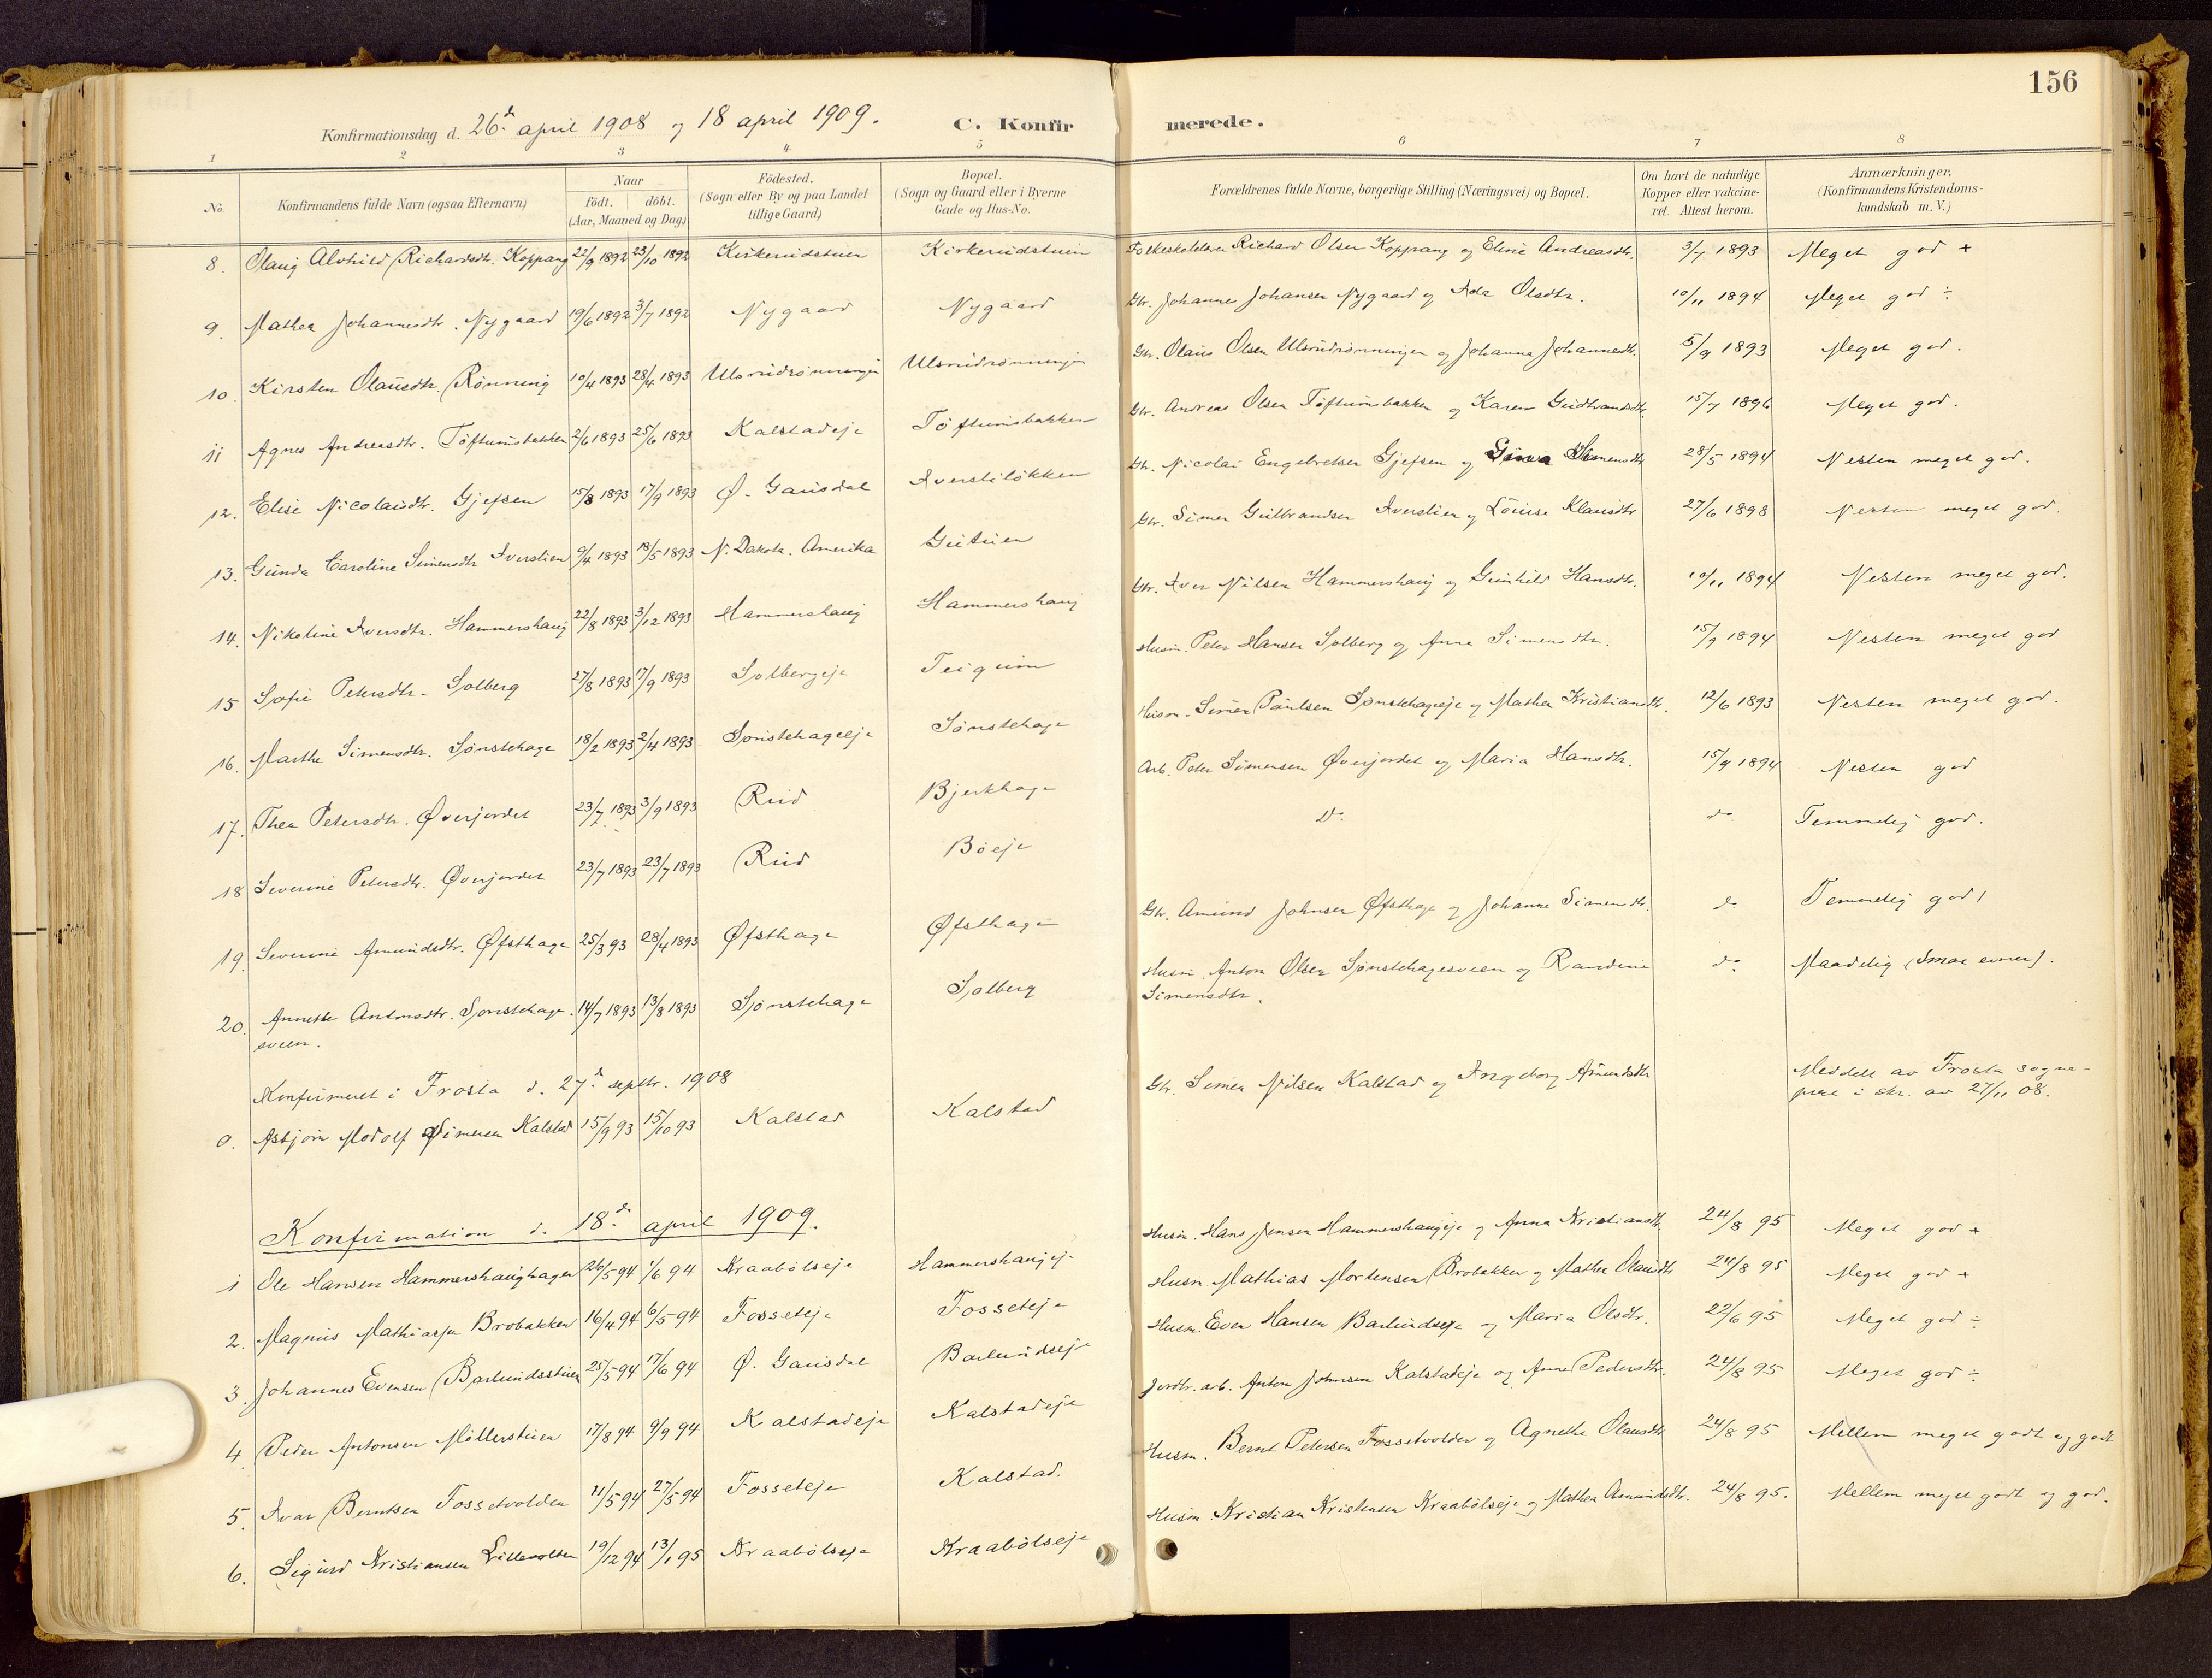 156
Konfirmationsdag d. 26de april 1908 og 18 april 1909. C. Konfirmerede.
1 2 3 4. 5 6 7 8
No. Konfirmandens fulde Navn (ogsaa Efternavn) Naar födt. döbt. (Aar, Maaned og Dag) Födested. (Sogn eller By og paa Landet tillige Gaard) Bopæl. (Sogn og Gaard eller i Byerne Gade og Hus-No. Forældrenes fulde Navne, borgerlige Stilling (Næringsvei) og Bopæl. Om havt de naturlige Kopper eller vakcineret Attest herom. Anmærkninger. (Konfirmandens Kristendomskundskab m. V.)
8. Olaug Alvhild Richardsdtr. Koppang 22/9 1892 23/10 1892 Kirkerudstuen Kirkerudstuen Folkeskolelærer Richard Olsen Koppang og Eline Andreasdtr. 3/7 1893 Meget god +
9. Mathea Johannesdtr. Nygaard 19/6 1892 3/7 1892 Nygaard Nygaard Gbr. Johannes Johansen Nygaard og Olsdtr. 10/11 1894 Meget god ÷
10. Kirsten Olausdtr. Rønning 10/4 1893 28/4 1893 Ulsrudrønningen Ulsrudrønningen Gbr. Olaus Olsen Ulsrudrønningen og Johanna Johannesdtr. 5/9 1893 Meget god.
11 Agnes Andreasdtr. Töftumsbakken 2/6 1893 25/6 1893 Kalstadeje Töftumsbakken Gbr. Andreas Olsen Töftumsbakken og Karen Gudbrandsdtr. 15/7 1896 Meget god.
12. Elise Nicolaisdtr. Gjefsen 15/8 1893 17/9 1893 Ø. Gausdal Averstiløkken Gbr. Nicolai Engebretsen Gjefsen og Simensdtr 28/5 1894 Nesten meget god.
13. Gunda Caroline Simensdtr Iverslien 9/4 1893 18/5 1893 N. Dakota. Amerika Gutuen Gbr. Simen Gulbrandsen Iverslien og Louise Klausdtr 27/6 1898 Nesten meget god.
14. Nikoline Iversdtr. Hammershaug 22/8 1893 3/12 1893 Hammershaug Hammershaug Gbr. Iver Nilsen Hammershaug og Gunhild Hansdtr. 10/11 1894 Nesten meget god.
15 Sofie Petersdtr. Solberg 27/8 1893 17/9 1893 Solbergeje Teigum Husm. Peter Hansen Solberg og Anne Simensdtr. 15/9 1894 Nesten meget god
16. Marthe Simensdtr. Sønstehage 18/2 1893 2/4 1893 Sønstehageeje Sønstehage Husm. Simen Paulsen Sønstehageeje og Mathea Kristiansdtr. 12/6 1893 Nesten meget god.
17. Thea Petersdtr. Øverjordet 23/7 1893 3/9 1893 Rud Bjerkhage Arb. Peter Simensen Øverjordet og Maria Hansdtr. 15/9 1894 Nesten god
18 Severine Petersdtr. Øverjordet 23/7 1893 23/7 1893 Rud Böeje Do. do. Temmelig god.
19. Severine Amundsdtr. Øfsthage 25/3 93 28/4 1893 Øfsthage Øfsthage Gbr. Amund Johnsen Øfsthage og Johanne Simensdtr. do Temmelig god
20. Annette Antonsdtr. Sønstehagesveen. 14/7 1893 13/8 1893 Sønstehage Solberg Husm. Anton Olsen Sønstehagesveen og Randine Simensdtr. do. Maadelig (smaa evner).
Konfirmeret i Frosta d. 27de septbr. 1908
0. Asbjørn Modolf Simensen Kalstad 15/9 93 15/10 93 Kalstad Kalstad Gbr. Simen Nilsen Kalstad og Ingeborg Amundsdtr Meddelt av Frosta sogneprest i skr. av 27/11 08.
Konfirmation d. 18de april 1909.
1 Ole Hansen Hammershaughagen 26/5 94 1/6 94 Kraabölseje Hammershaugej. Husm. Hans Jensen Hammershaugeje og Anna Kristiansdtr 24/8 95 Meget god +
2. Magnus Mathiasen Brobakken 16/4 94 6/5 94 Fosseteje Fosseteje Husm Mathias Mortensen Brobakken og Mathea Olausdtr 24/8 95 Meget god +
3. Johannes Evensen Barlundsstuen 25/5 94 17/6 94 Ø. Gausdal Barlundseje Husm. Even Hansen Barlundseje og Maria Olsdtr. 22/6 95 Meget god ÷
4. Peder Antonsen Möllerstuen 17/8 94 9/9 94 Kalstadeje Kalstadeje Jordbr. arb. Anton Johnsen Kalstadeje og Anne Pedersdtr. 24/8 95 Meget god ÷
5. Ivar Berntsen Fossetvolden 11/5 94 27/5 94 Fosseteje Kalstad. Husm. Bernt Petersen Fossetvolden og Agnethe Olausdtr 24/8 95 Mellem meget godt og godt
6. Sigurd Kristiansen Lillevolden 19/12 94 13/1 95 Kraabölseje Kraabölseje Husm. Kristian Kristensen Kraabölseje og Mathea Amundsdtr. 24/8 95. Mellem meget godt og god.